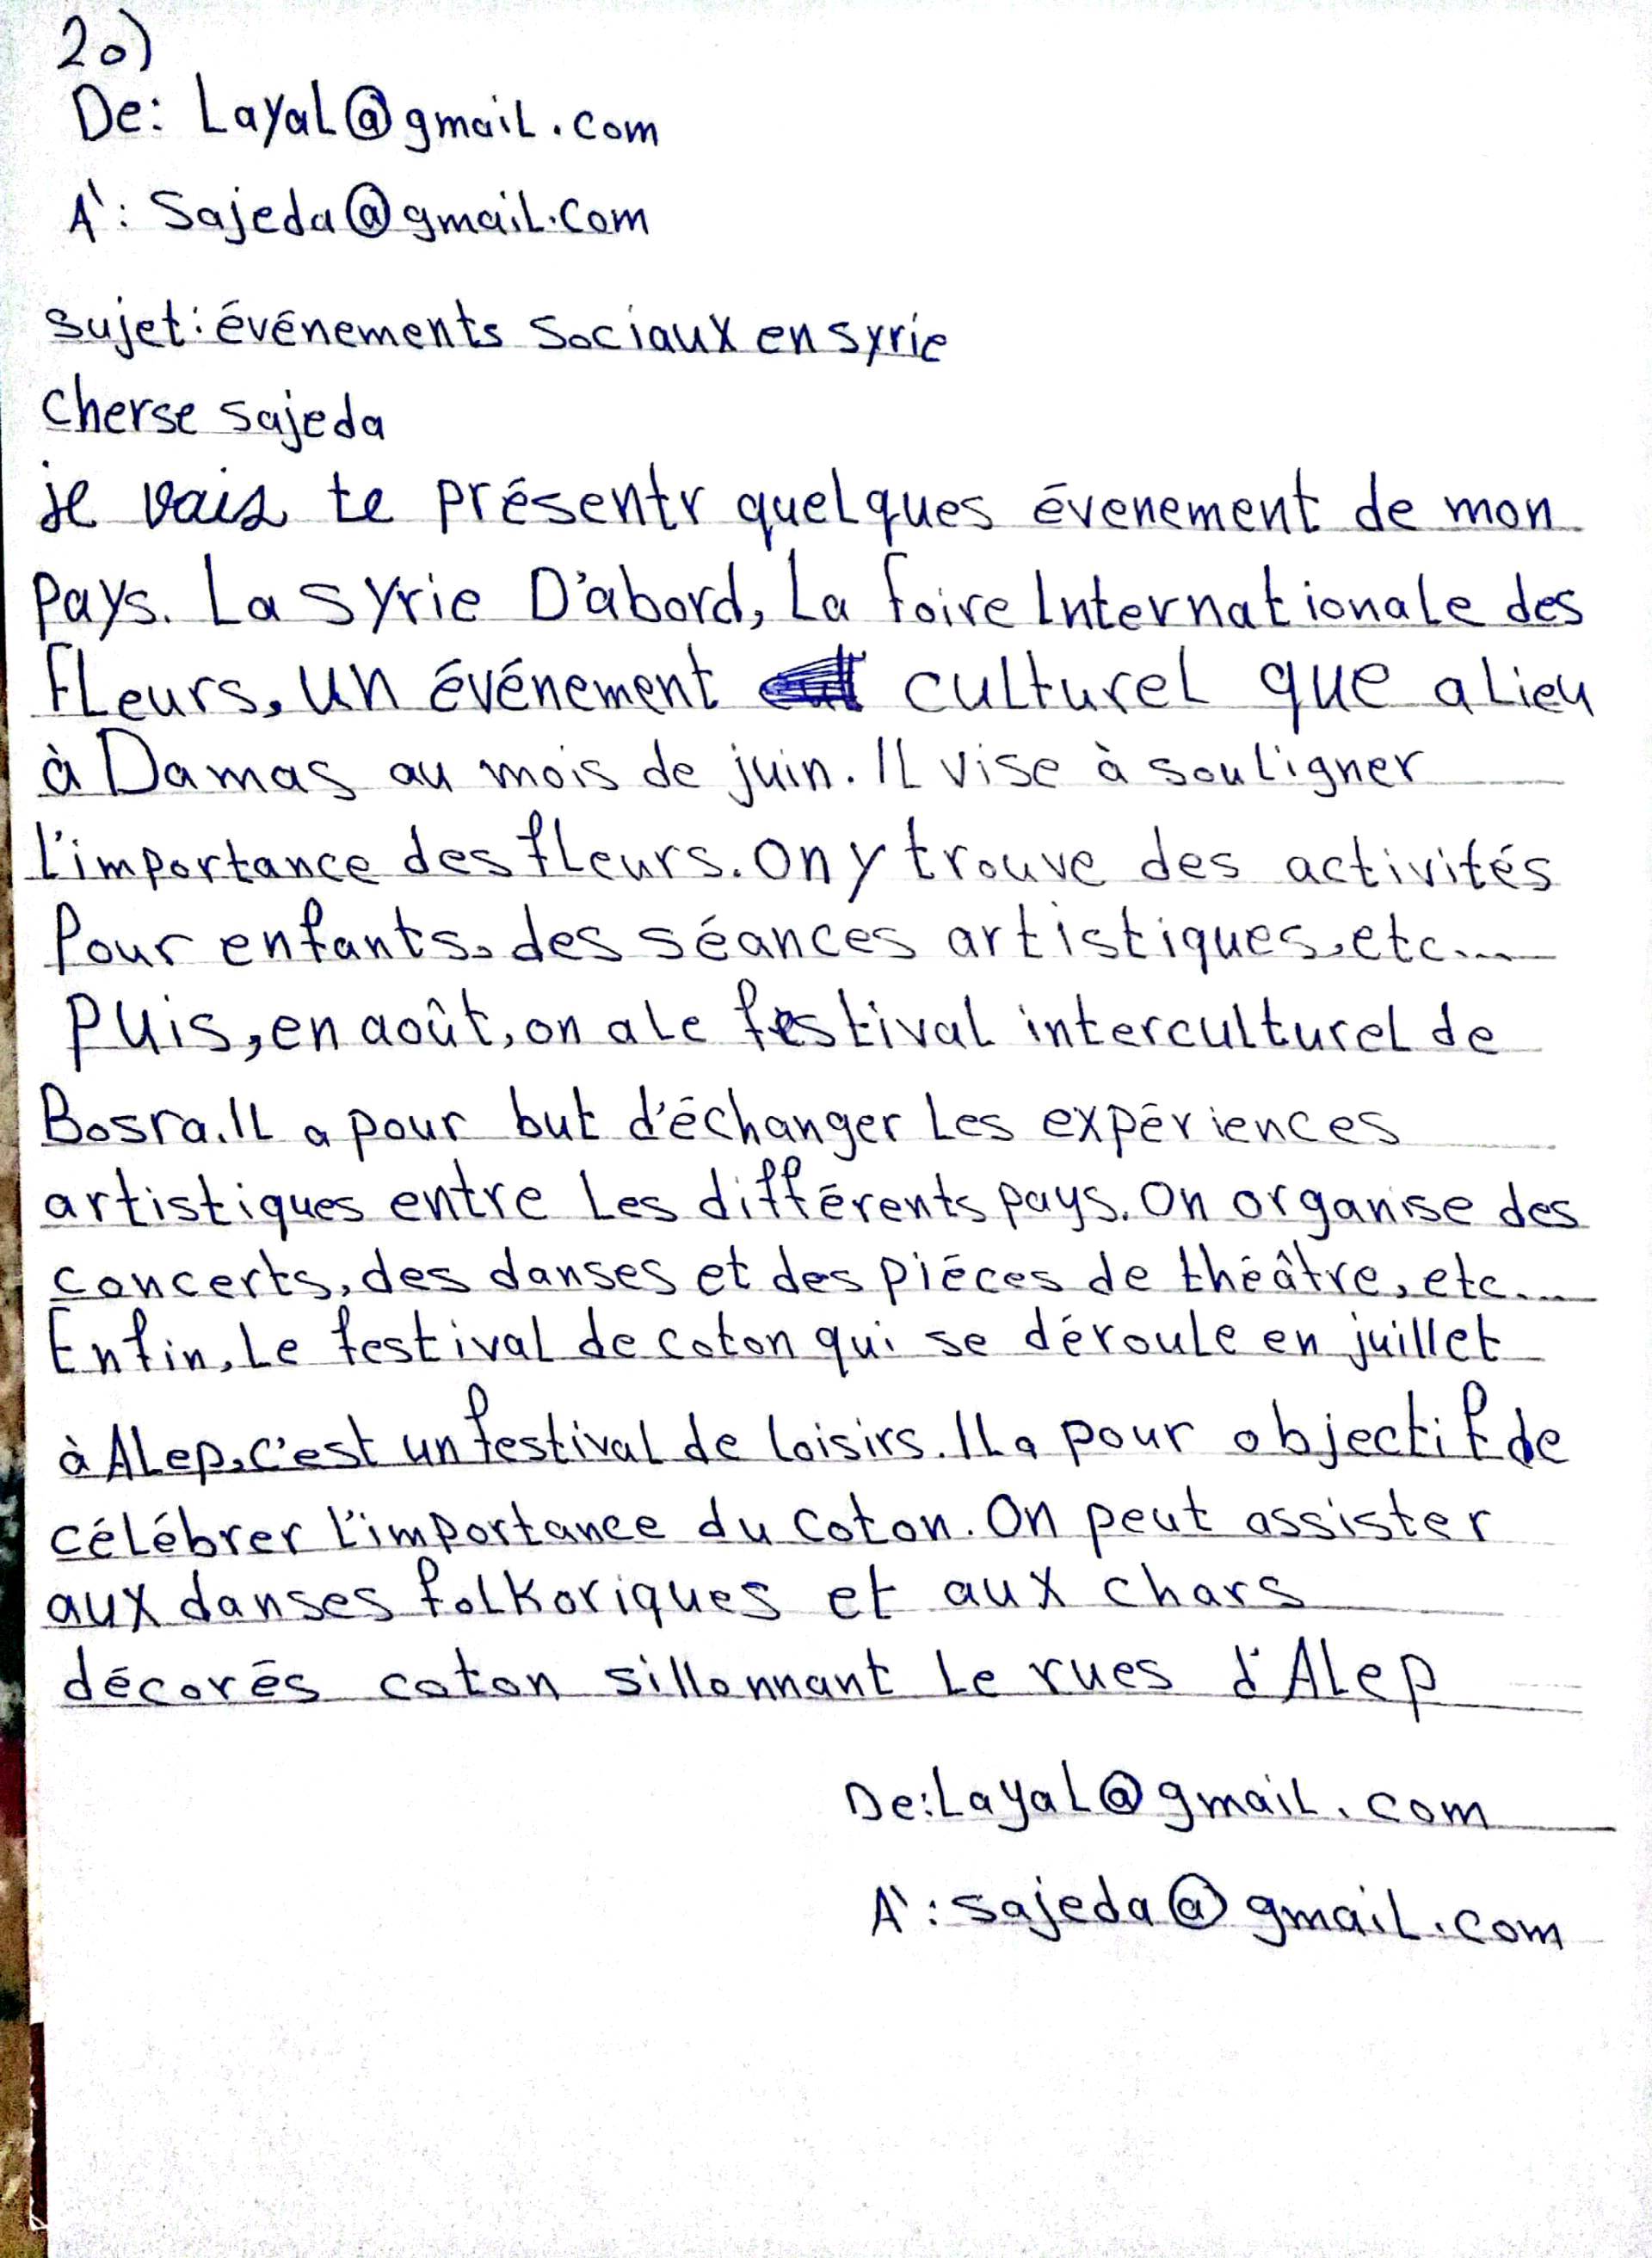 20)
De: Layal@gmail.com
À: Sajeda@gmail.com
sujet: événements sociaux en syrie
Cherse sajeda
je vais te présentr quelques évenement de mon
pays. La syrie D'abord, La foire Internationale des
Fleurs, un événement culturel que a lieu
à Damas au mois de juin. Il vise à souligner
l'importance des fleurs. On y trouve des activités
Pour enfants, des séances artistiques, etc....
Puis, en août, on a le festival interculturel de
Bosra. Il a pour but d'échanger les expériences
artistiques entre les différents pays. On organise des
concerts, des danses et des piéces de théâtre, etc....
Enfin, le festival de coton qui se déroule en juillet
à Alep, c'est un festival de loisirs. Il a pour objectif de
célébrer l'importance du coton. On peut assister
aux danses folkoriques et aux chars
décorés coton sillonnant le rues d'Alep
De: Layal@gmail.com
À: sajeda@gmail.com